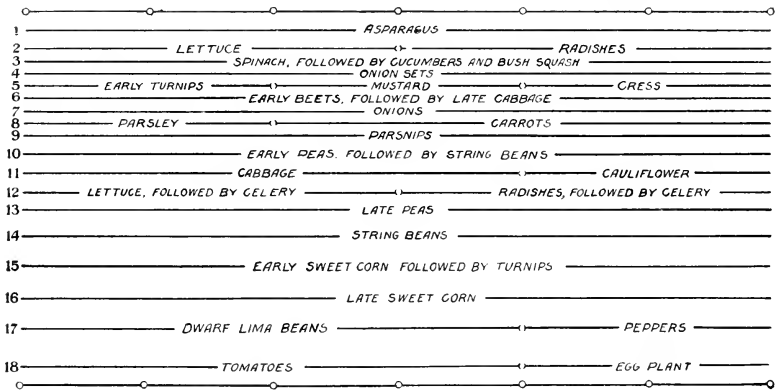 1 ASPARAGUS
2 LETTUCE RADISHES
3 SPINACH, FOLLOWED BY CUCUMBERS AND BUSH SQUASH
4 ONION SETS
5 EARLY TURNIPS MUSTARD CRESS
6 EARLY BEETS, FOLLOWED BY LATE CABBAGE
7 ONIONS
8 PARSLEY CARROTS
9 PARSNIPS
10 EARLY PEAS, FOLLOWED BY STRING BEANS
11 CABBAGE CAULIFLOWER
12 LETTUCE, FOLLOWED BY CELERY RADISHES, FOLLOWED BY CELERY
13 LATE PEAS
14 STRING BEANS
15 EARLY SWEET CORN FOLLOWED BY TURNIPS
16 LATE SWEET CORN
17 DWARF LIMA BEANS PEPPERS
18 TOMATOES EGG PLANT